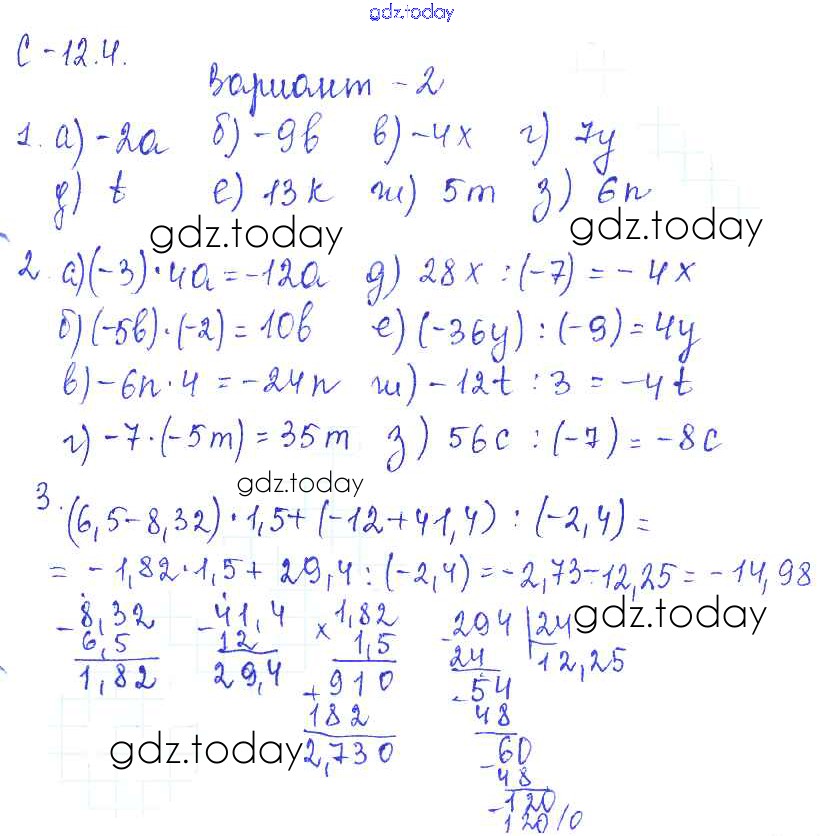 gdz.today
С-12.4.
Вариант - 2
1. а) -2a б) -9b в) -4x г) 7y
д) t е) 13k ж) 5m з) 6n
gdz.today gdz.today
2. а) (-3)·4a = -12a д) 28x : (-7) = -4x
б) (-5b)·(-2) = 10b е) (-36y) : (-9) = 4y
в) -6n·4 = -24n ж) -12t : 3 = -4t
г) -7·(-5m) = 35m з) 56c : (-7) = -8c
gdz.today
3. (6,5-8,32)·1,5+(-12+41,4) : (-2,4) =
= -1,82·1,5+ 29,4 : (-2,4) = -2,73-12,25 = -14,98
-8,32 -41,4 ×1,82 -294 | 24
6,5 12 1,5 24 12,25
1,82 29,4 +910 -54
182 48
2,730 -60
48
-120
120/0
gdz.today
gdz.today